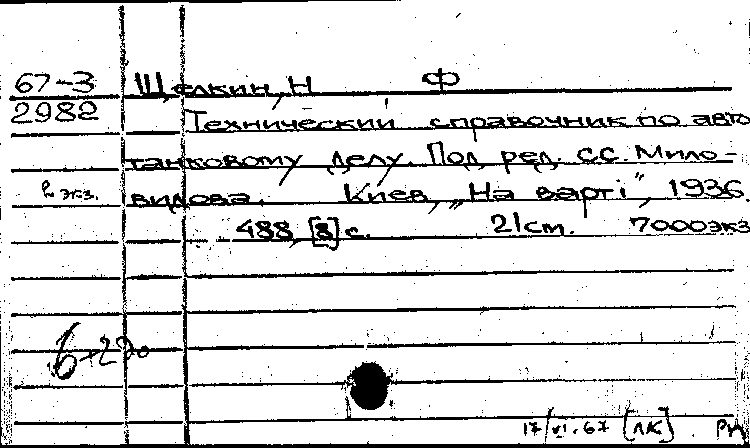 67-3 Щелкин, Н Ф
2982 Технический справочник по авто
танковому делу. Под ред. С.С. Мило-
2 экз. видова. Киев, „На вартi", 1936.
488, [8] с. 21 см. 7000 экз
17/VI.67 [ЛК]